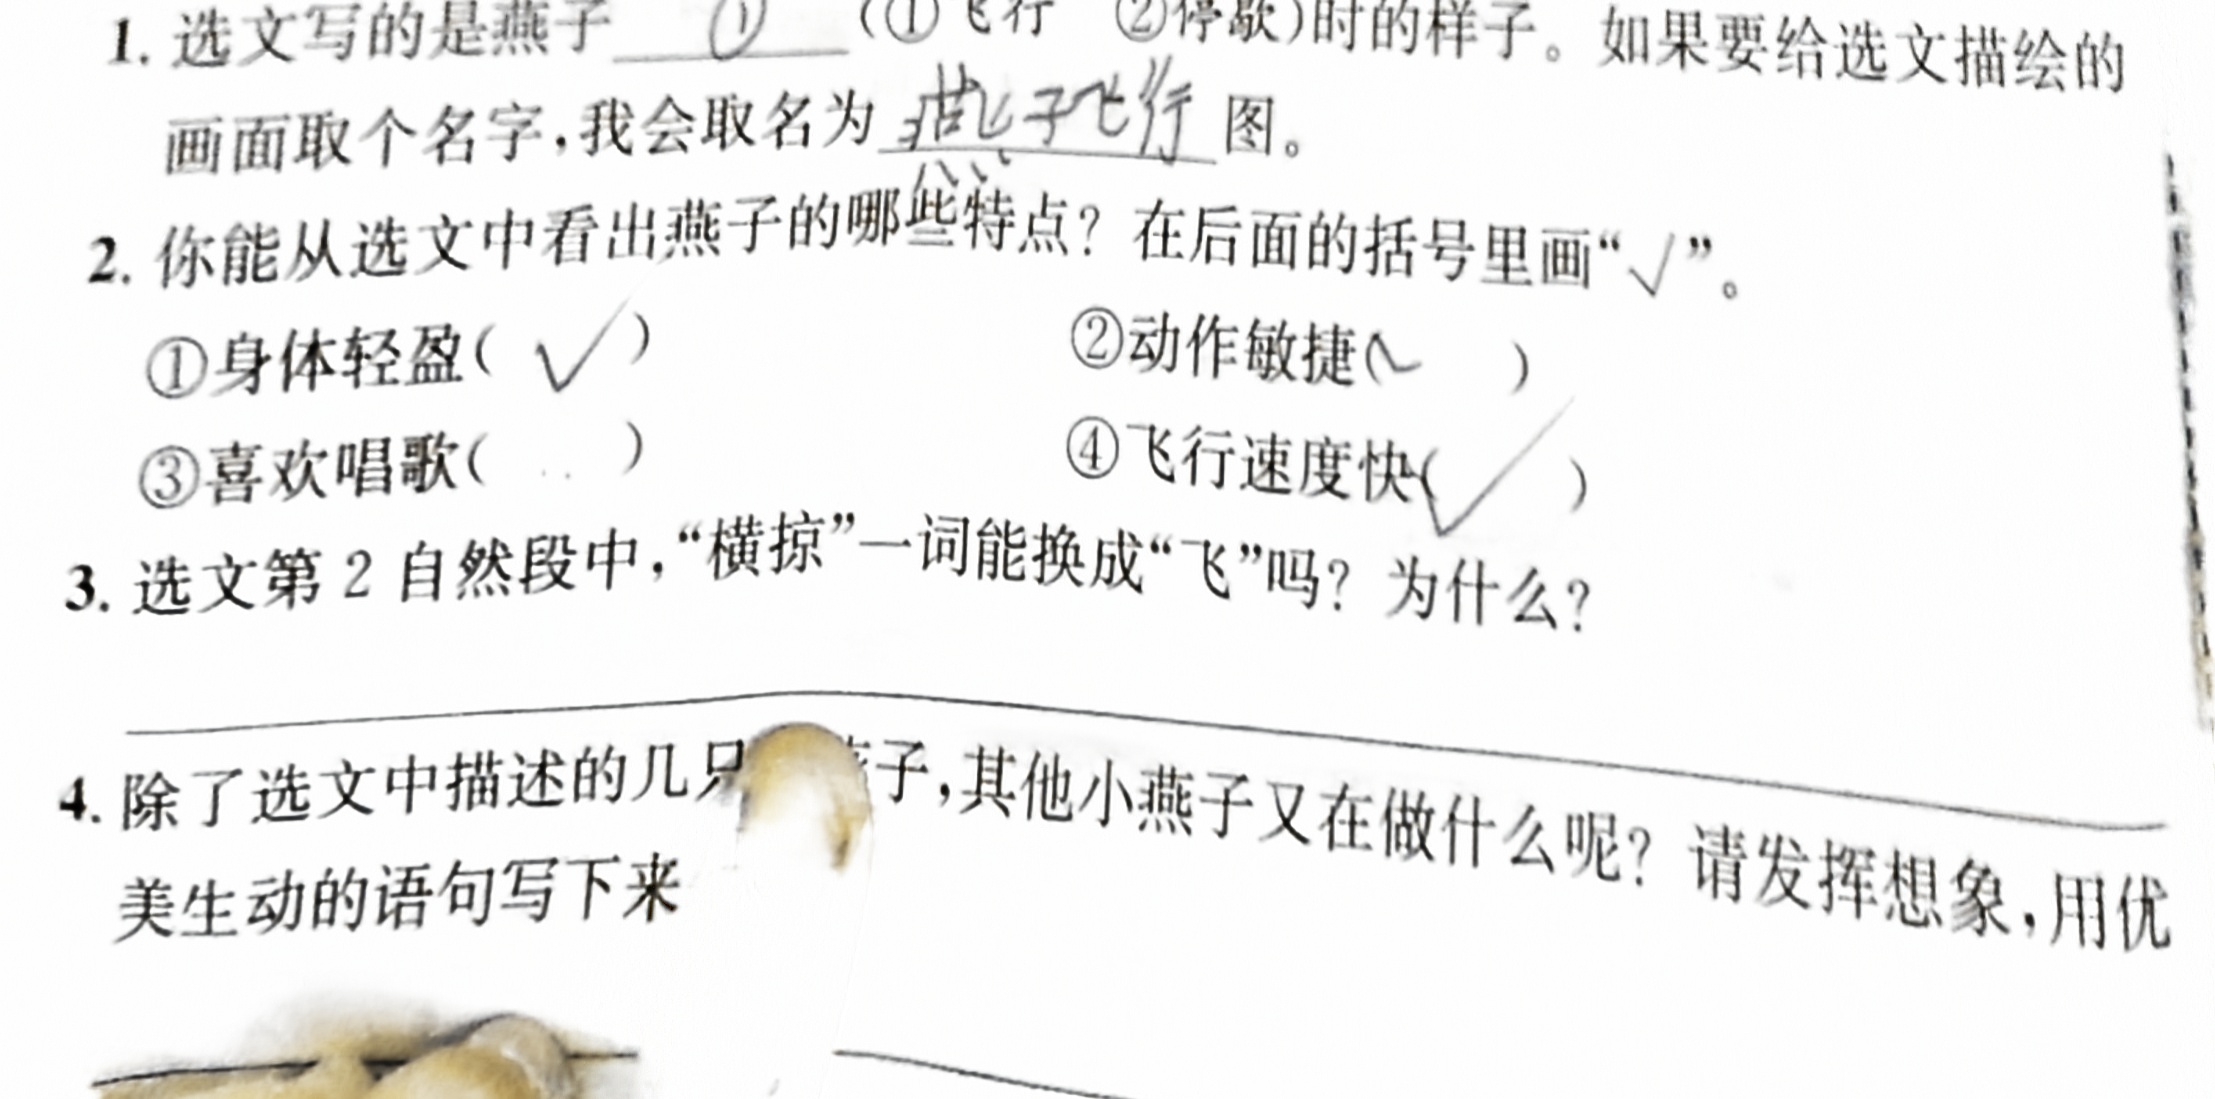 1. 选文写的是燕子 ① (①飞行 ②停歇)时的样子。如果要给选文描绘的
画面取个名字,我会取名为 燕子飞行 图。
2. 你能从选文中看出燕子的哪些特点? 在后面的括号里画“√”。
①身体轻盈( √ ) ②动作敏捷( )
③喜欢唱歌( ) ④飞行速度快( √ )
3. 选文第 2 自然段中,“横掠”一词能换成“飞”吗? 为什么?
4. 除了选文中描述的几只 子,其他小燕子又在做什么呢? 请发挥想象,用优
美生动的语句写下来